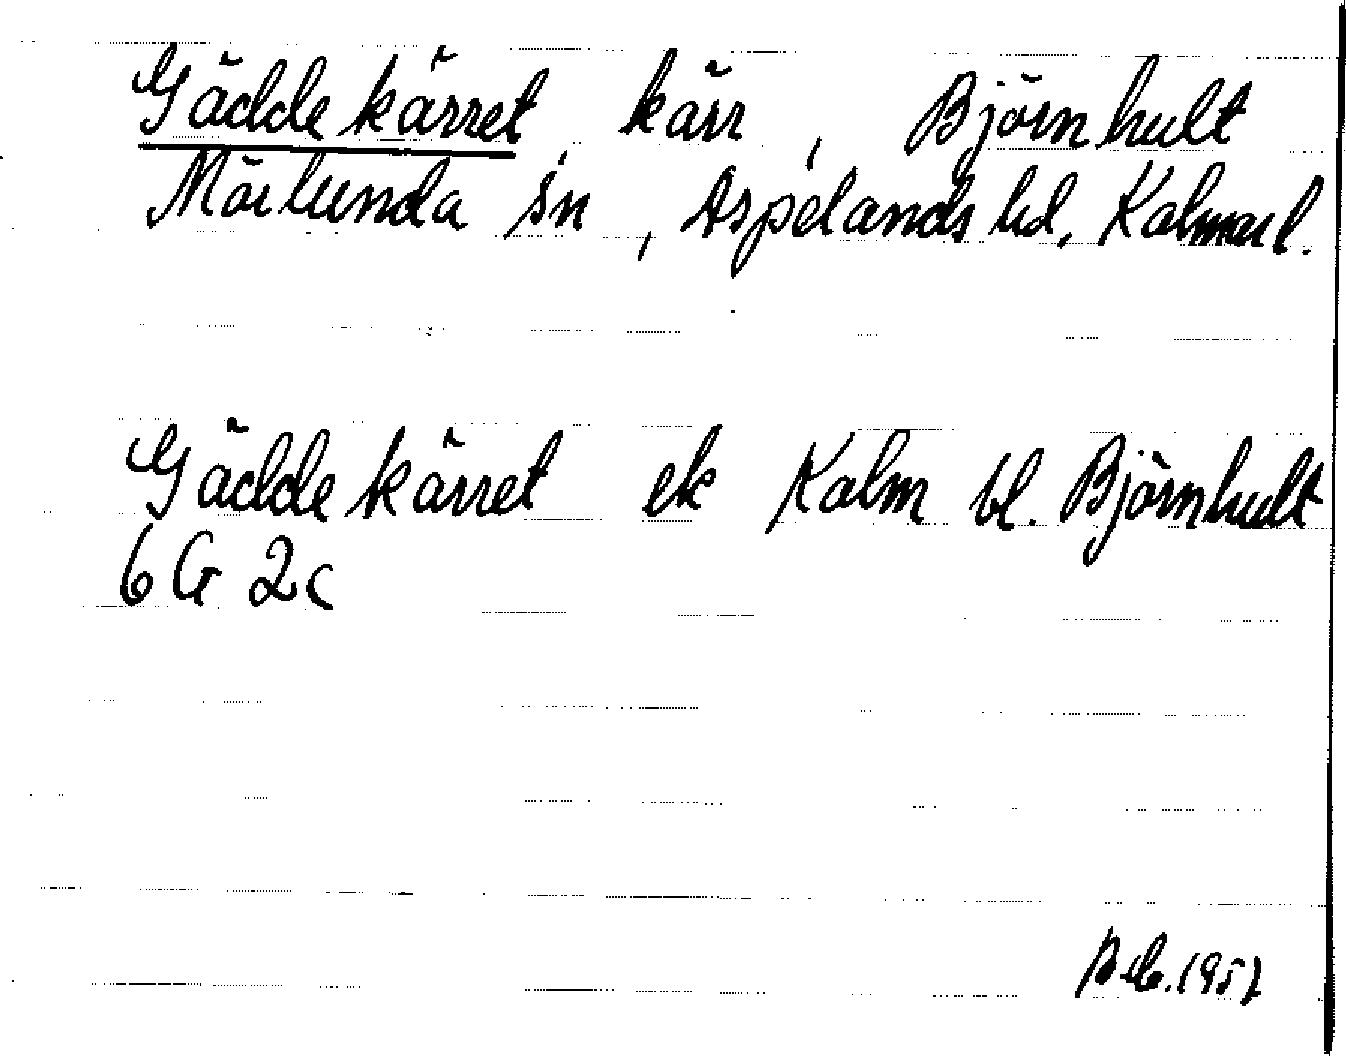 Gäddekärret, kärr, Björnhult
Mörlunda sn, Aspelands hd, Kalmar l.
Gäddekärret ek Kalm bl. Björnhult
6 G 2c
1957